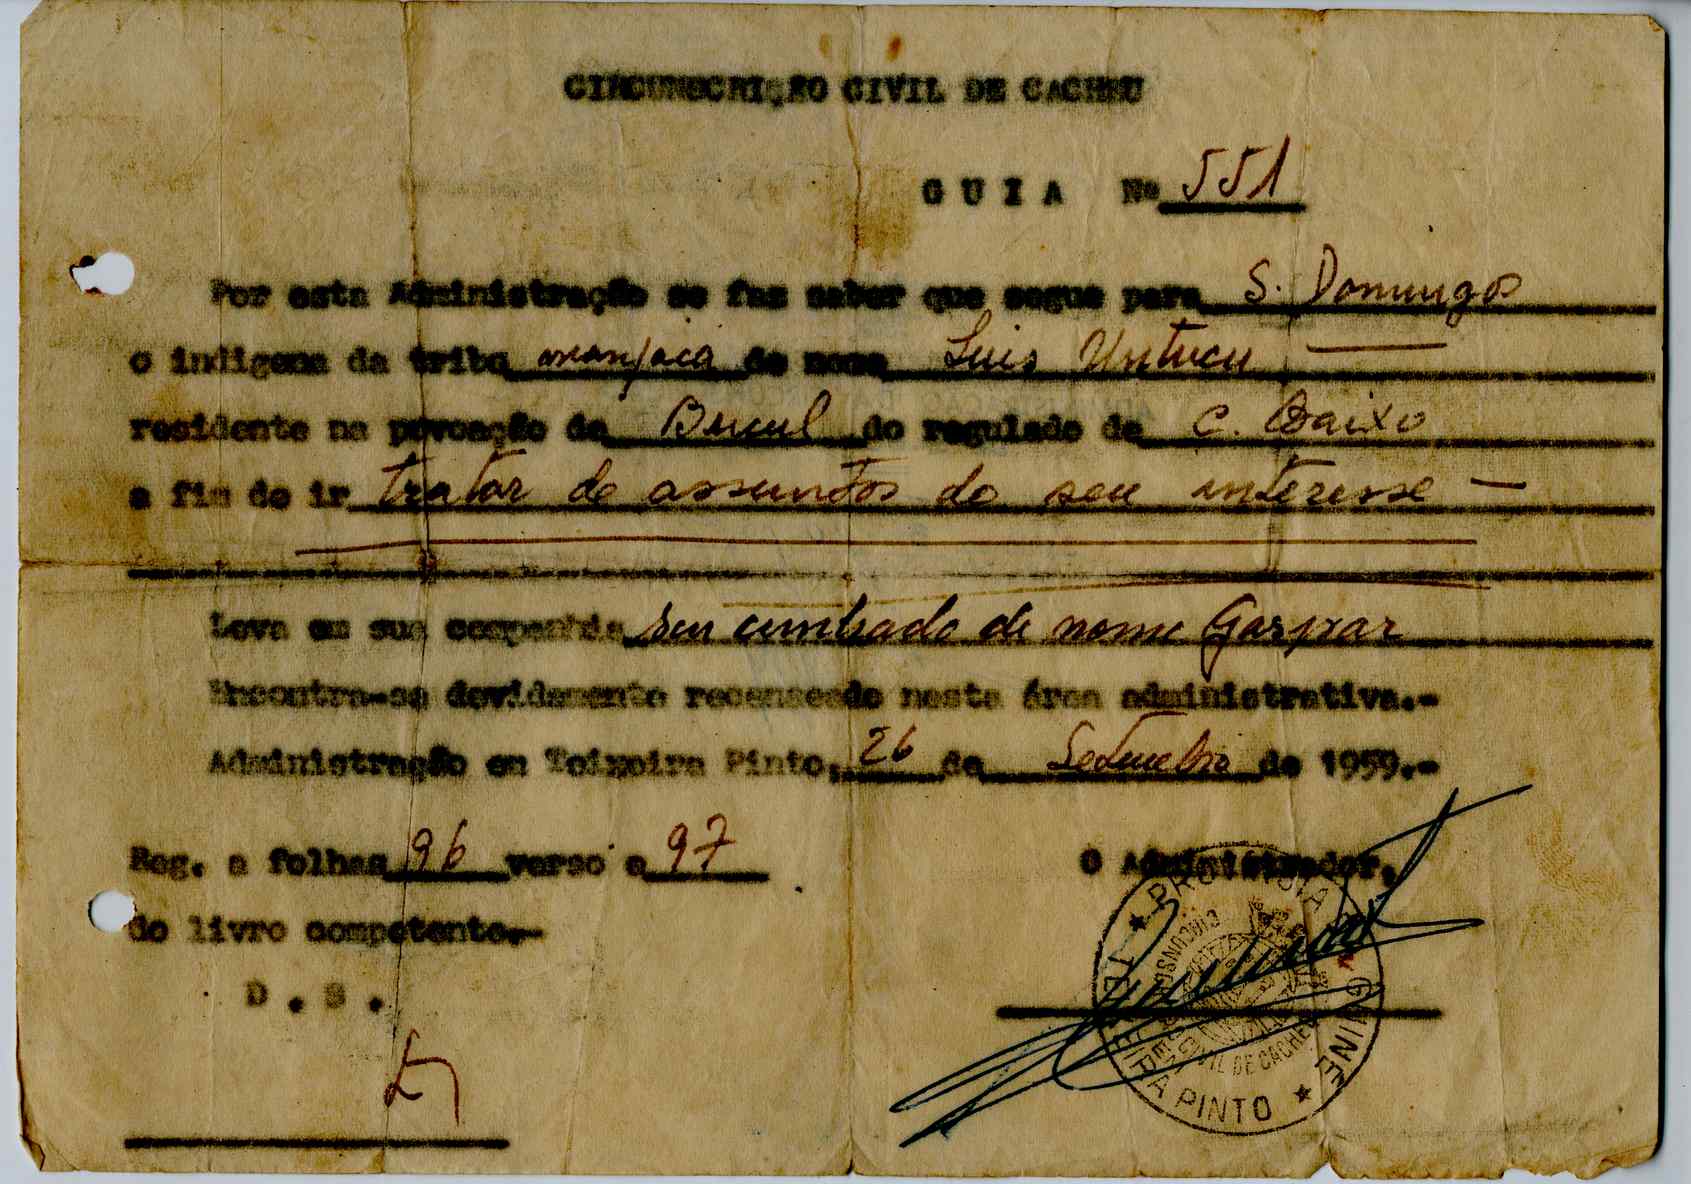 CIRCUNSCRIÇÃO CIVIL DE CACHEU
GUIA Nº 551
Por esta Administração se faz saber que segue para S. Domingos
o indigena da tribo manjaca de nome Luis Untucu
residente na povoação de Bucul do regulado de C. Baixo
a fim de ir tratar de assuntos do seu interesse —
Leva em sua companhia seu cunhado de nome Gaspar
Encontra-se devidamente recenseado nesta área administrativa.-
Administração em Teixeira Pinto, 26 de Setembro de 1959.-
Reg. a folhas 96 verso e 97
O Administrador,
do livro competente.-
D. S.
PROVINCIA GUINÉ
CIRCUNSCRIÇÃO CIVIL DE CACHEU
TEIXEIRA PINTO